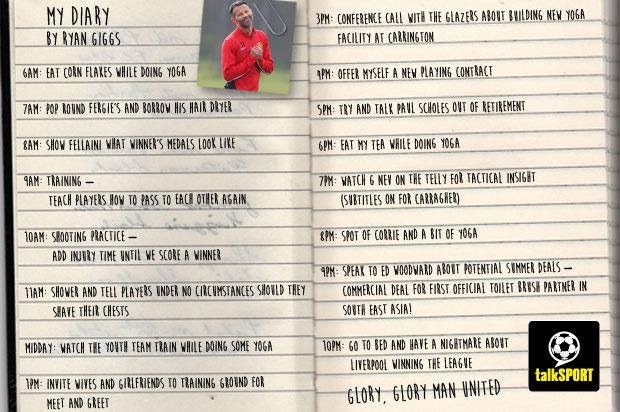 MY DIARY
BY RYAN GIGGS
6AM: EAT CORN FLAKES WHILE DOING YOGA
7AM: POP ROUND FERGIE'S AND BORROW HIS HAIR DRYER
8AM: SHOW FELLAINI WHAT WINNER'S MEDALS LOOK LIKE
9AM: TRAINING –
TEACH PLAYERS HOW TO PASS TO EACH OTHER AGAIN
10AM: SHOOTING PRACTICE –
ADD INJURY TIME UNTIL WE SCORE A WINNER
11AM: SHOWER AND TELL PLAYERS UNDER NO CIRCUMSTANCES SHOULD THEY
SHAVE THEIR CHESTS
MIDDAY: WATCH THE YOUTH TEAM TRAIN WHILE DOING SOME YOGA
1PM: INVITE WIVES AND GIRLFRIENDS TO TRAINING GROUND FOR
MEET AND GREET
3PM: CONFERENCE CALL WITH THE GLAZERS ABOUT BUILDING NEW YOGA
FACILITY AT CARRINGTON
4PM: OFFER MYSELF A NEW PLAYING CONTRACT
5PM: TRY AND TALK PAUL SCHOLES OUT OF RETIREMENT
6PM: EAT MY TEA WHILE DOING YOGA
7PM: WATCH G NEV ON THE TELLY FOR TACTICAL INSIGHT
(SUBTITLES ON FOR CARRAGHER)
8PM: SPOT OF CORRIE AND A BIT OF YOGA
9PM: SPEAK TO ED WOODWARD ABOUT POTENTIAL SUMMER DEALS –
COMMERCIAL DEAL FOR FIRST OFFICIAL TOILET BRUSH PARTNER IN
SOUTH EAST ASIA!
10PM: GO TO BED AND HAVE A NIGHTMARE ABOUT
LIVERPOOL WINNING THE LEAGUE
GLORY, GLORY MAN UNITED
talkSPORT